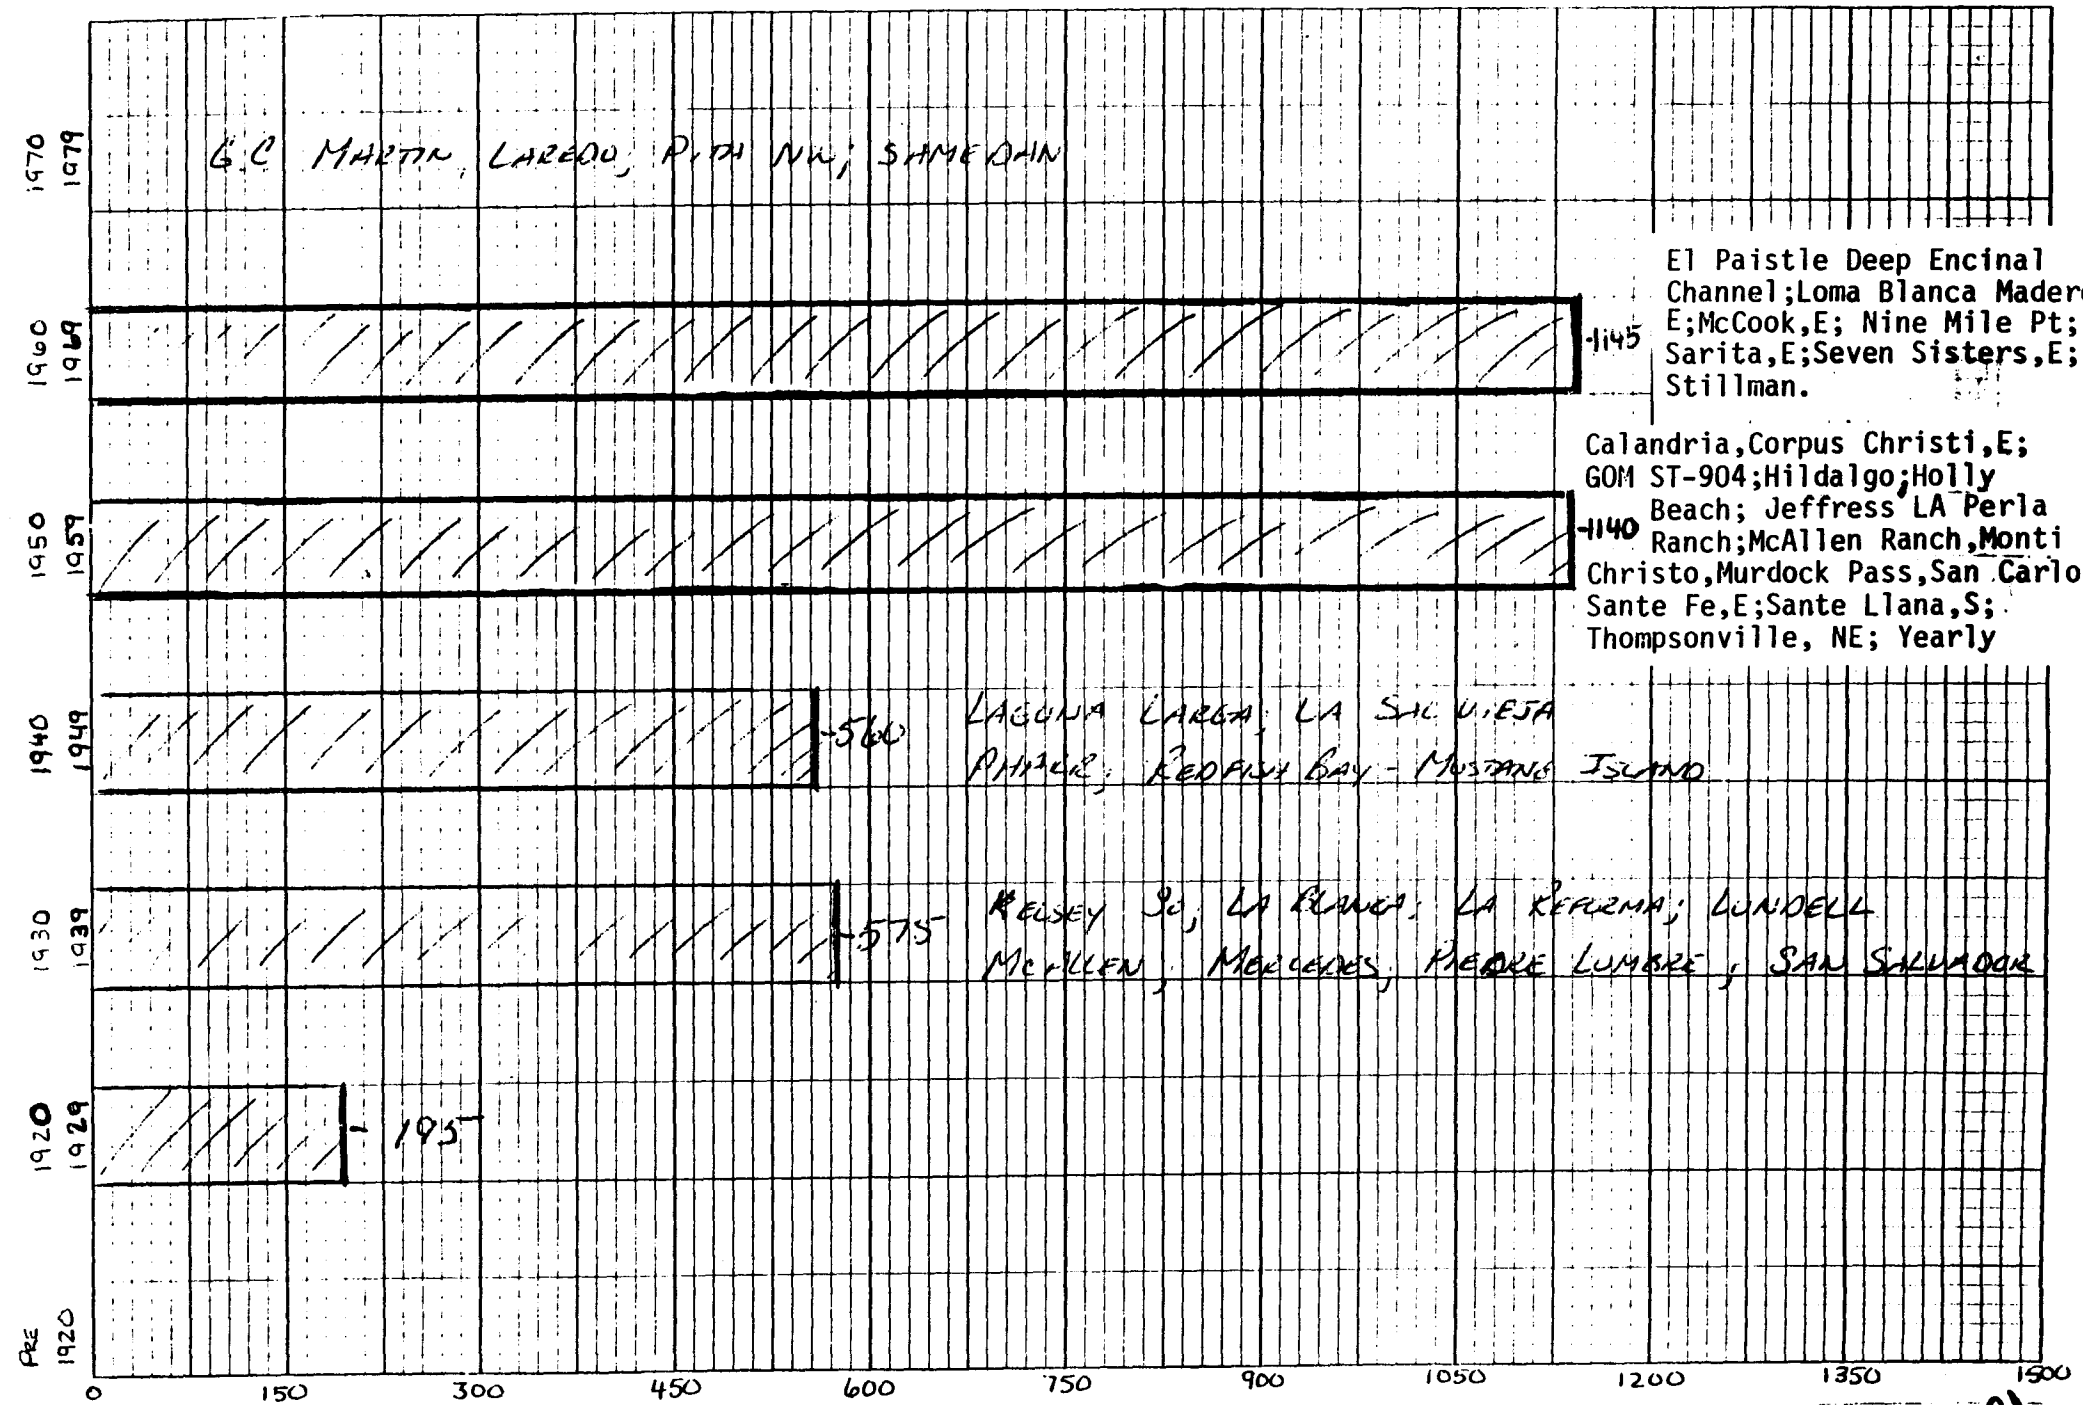 1970
1979
G.C MARTIN, LAREDO, PITA NW; SAMEDAN
1960
1969
-1145
El Paistle Deep Encinal
Channel;Loma Blanca Mader
E;McCook,E; Nine Mile Pt;
Sarita,E;Seven Sisters,E;
Stillman.
1950
1959
-1140
Calandria,Corpus Christi,E;
GOM ST-904;Hildalgo;Holly
Beach; Jeffress LA Perla
Ranch;McAllen Ranch,Monti
Christo,Murdock Pass,San Carlo
Sante Fe,E;Sante Llana,S;
Thompsonville, NE; Yearly
1940
1949
-560
LAGUNA LARGA; LA SAL VIEJA
REDFISH BAY - MUSTANG ISLAND
1930
1939
-575
KELSEY SO; LA BLANCA; LA REFORMA; LUNDELL
MCALLEN; MERCEDES; PIEDRE LUMBRE; SAN SALVADOR
1920
1929
- 195
PRE
1920
0 150 300 450 600 750 900 1050 1200 1350 1500